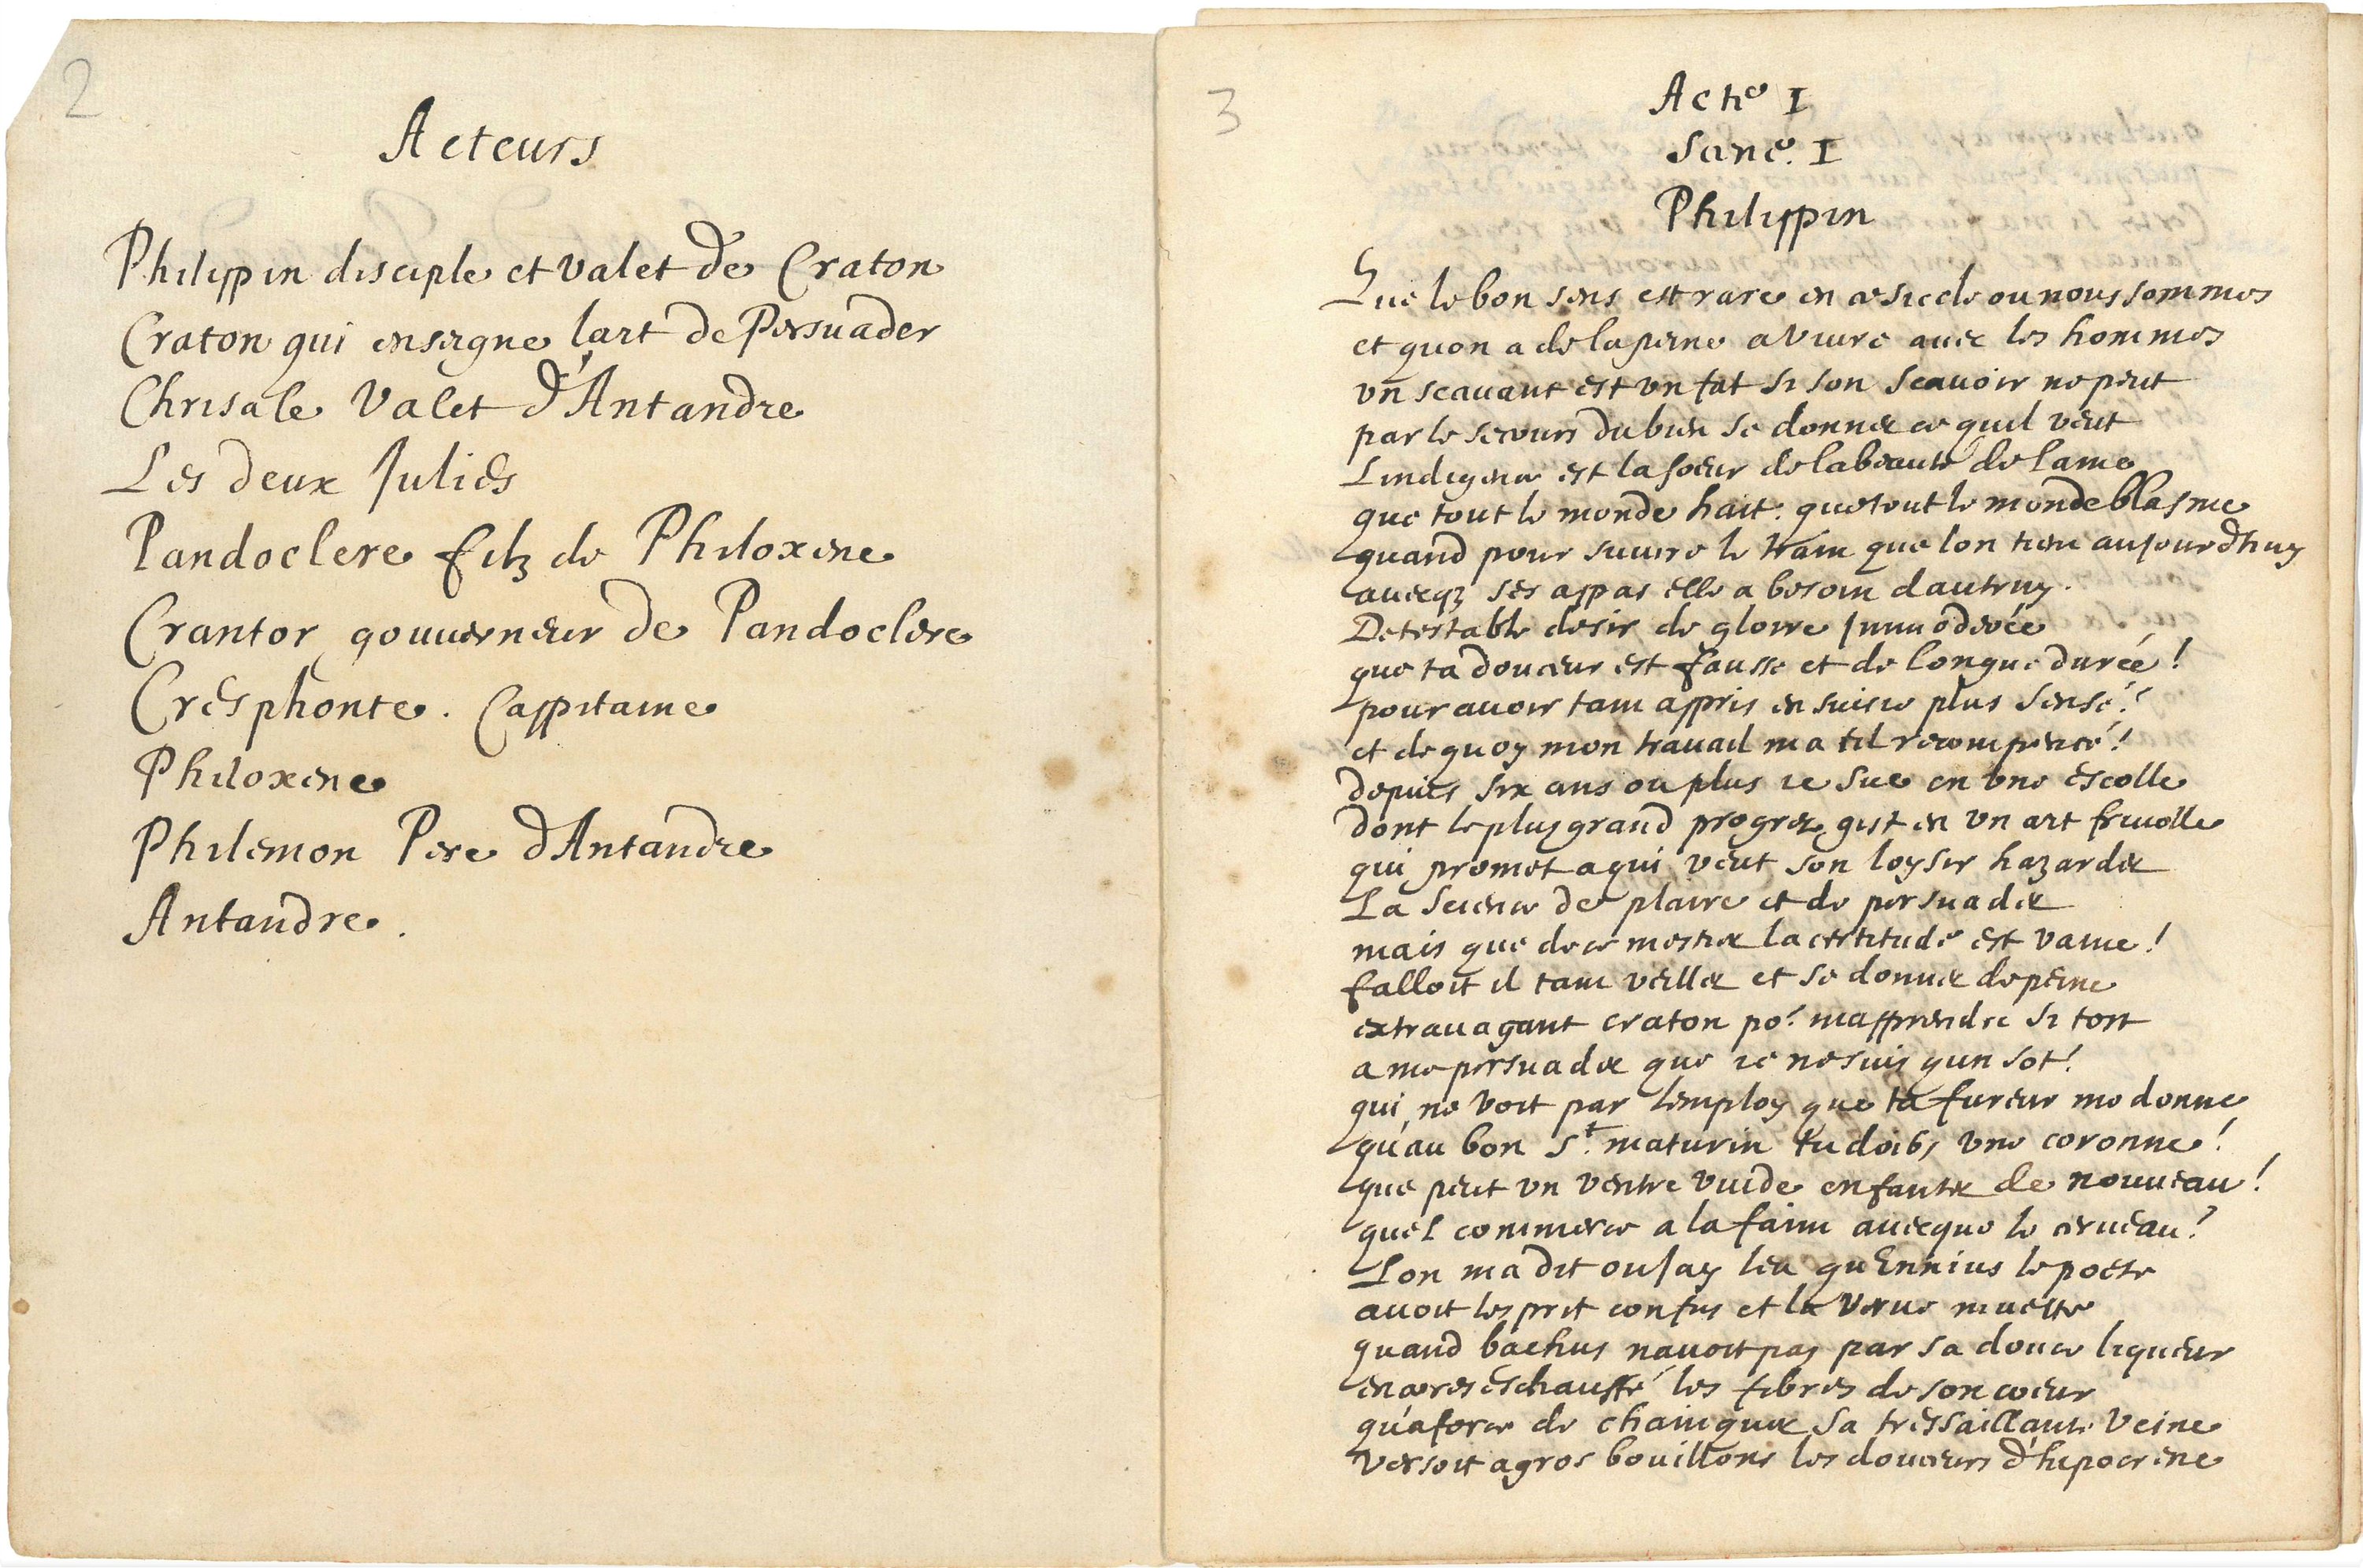 2
Acteurs
Philippin disciple et valet de Craton
Craton qui enseigne lart de Persuader
Chrisale Valet d'Antandre
Les deux Julies
Pandoclere filz de Philoxene
Crantor gouverneur de Pandoclere
Cresphonte. Cappitaine
Philoxene
Philemon Pere d'Antandre
Antandre.
3
Acte I
Scene. I
Philippin
Que le bon sens est rare en ce siecle ou nous sommes
et quon a de la peine a vivre avec les hommes
vn scauant est vn fat si son scauoir ne peut
par le secours du bien se donner ce quil veut
Lindigence est la soeur de la beauté de lame
que tout le monde hait. que tout le monde blasme
quand pour suiure le train que lon tient aujourdhuy
auecqz ses appas elle a besoin dautruy.
Detestable desir de gloire Immoderée
que ta douceur est fausse et de longue durée!
pour auoir tant appris en suis ie plus sensé?
et de quoy mon trauail ma til recompencé!
depuis six ans ou plus ie sue en vne escolle
dont le plus grand progrez gist en vn art friuolle
qui promet a qui veut son loysir hazarder
La science de plaire et de persuader
mais que de ce mestier la certitude est vaine!
falloit il tant veiller et se donner de peine
extrauagant craton po.r mapprendre si tost
a me persuader que ie ne suis qun sot!
qui ne voit par lemploy que ta fureur me donne
qu'au bon St. maturin tu doibs vne coronne!
que peut vn ventre vuide enfanter de nouueau!
quel commerce a la faim auecque le cerueau?
Lon ma dit ou Jay leu qu Ennius le poete
auoit lesprit confus et la verue muette
quand bachus nauoit pas par sa douce liqueur
en ces eschauffé les fibres de son coeur
qu'a force de chainquer sa tressaillante veine
versoit a gros bouillons les douceurs d'hipocrene